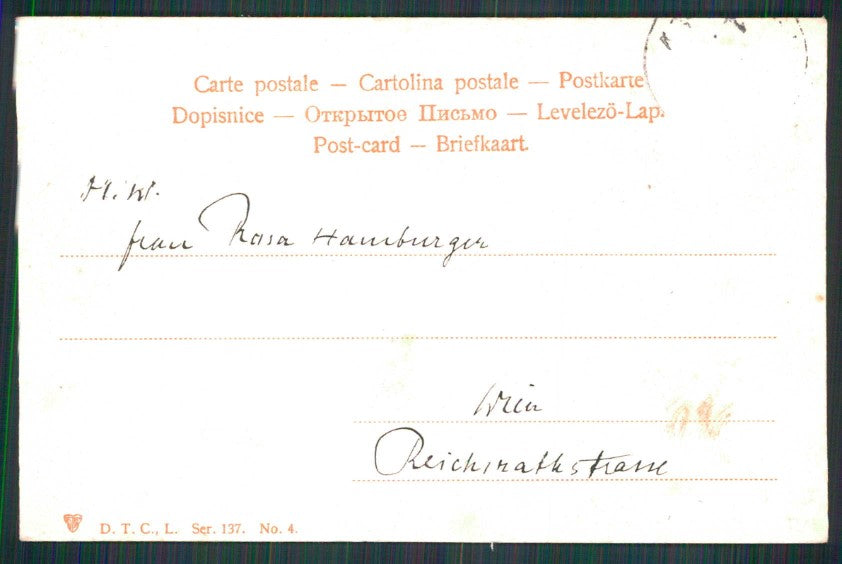 Carte postale — Cartolina postale — Postkarte
Dopisnice — Открытое Письмо — Levelezö-Lap.
Post-card — Briefkaart.
frau Rosa Hamburger
Wien
Reichsrathstrasse
D. T. C., L. Ser. 137. No. 4.